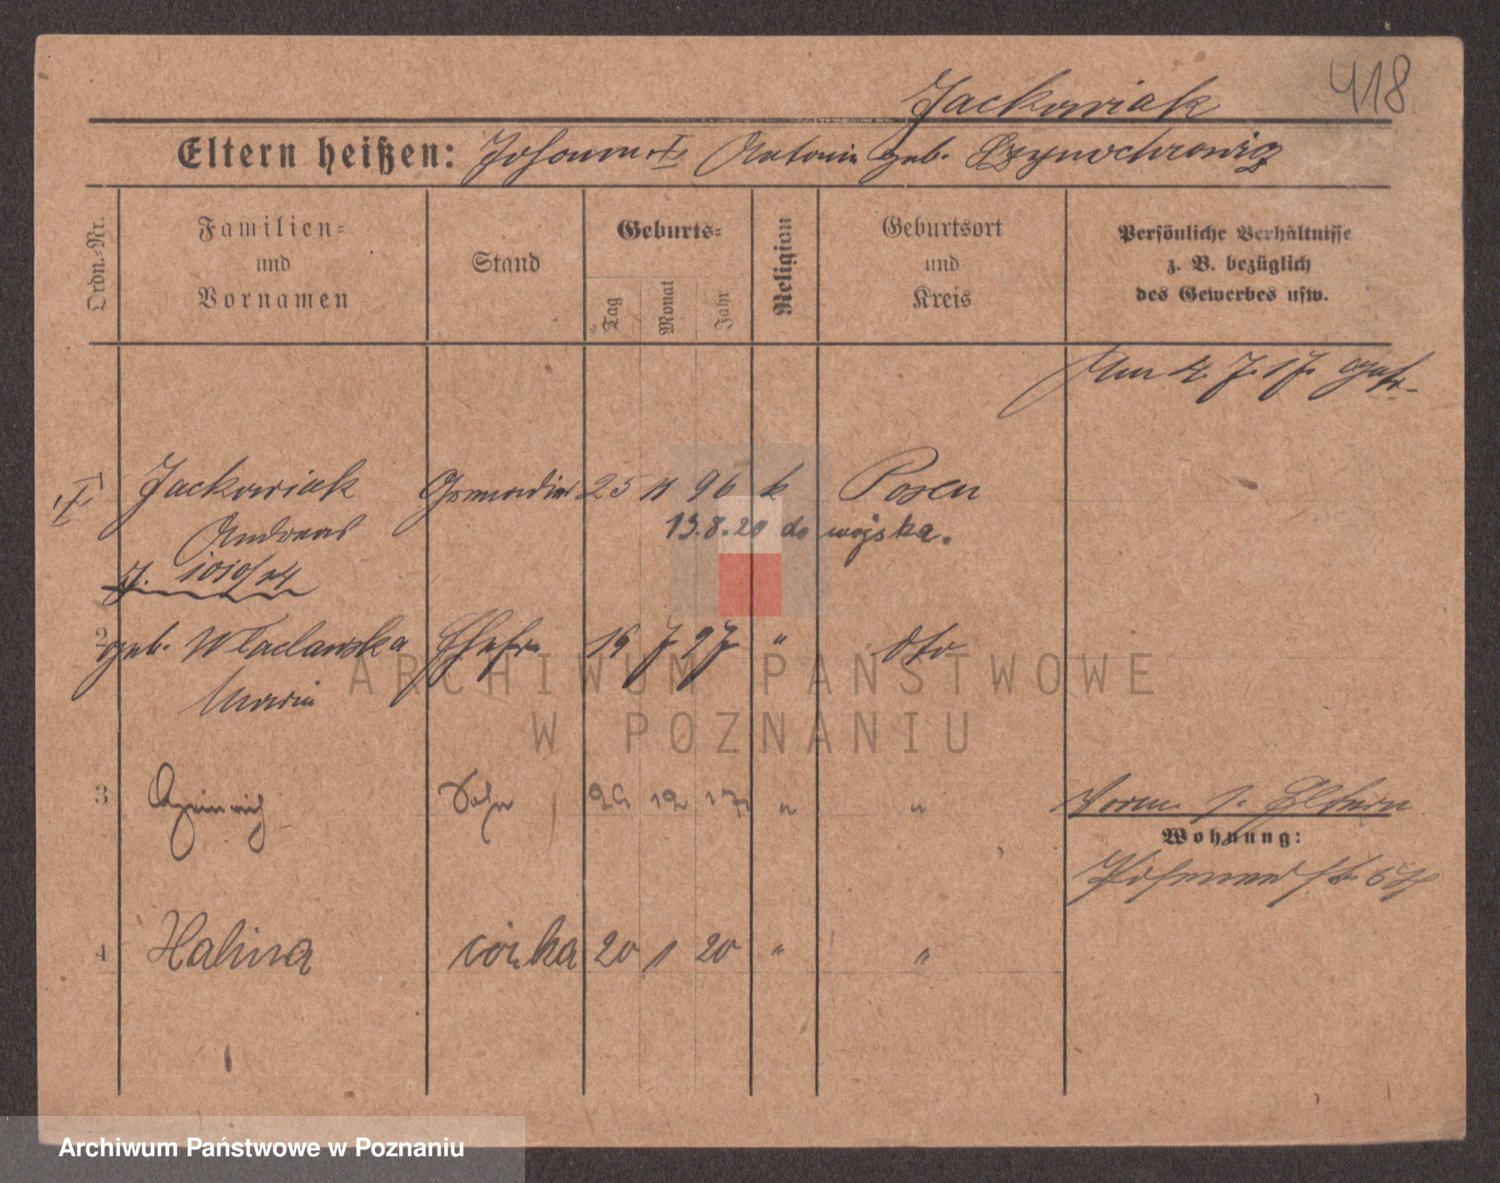 418
Jackowiak
Eltern heißen: Johann Antonie geb.
Ordn.-Nr.
Familien=
und
Vornamen
Stand
Geburts=
Tag
Monat
Jahr
Religion
Geburtsort
und
Kreis
Persönliche Verhältnisse
z. B. bezüglich
des Gewerbes usw.
Am 4. 7. 17.
Jackowiak Grenadier 25 11 96 k Posen
Andreas
13.8.20 do wojska.
J. 1010/24
2
geb. Wlaclawska Ehefr. 7 97 " dto
Maria
3 Heinrich Sohn 12 17 " "
Vorm. s. Eltern
Wohnung:
4 Halina córka 20 1 20 " "
ARCHIWUM PAŃSTWOWE
W POZNANIU
Archiwum Państwowe w Poznaniu